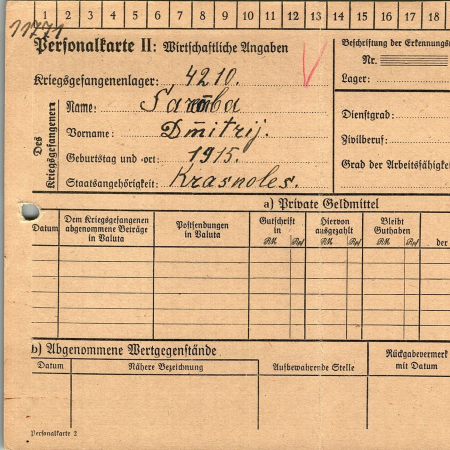 1 2 3 4 5 6 7 8 9 10 11 12 13 14 15 16 17 18
11771
Personalkarte II: Wirtschaftliche Angaben
Beschriftung der Erkennungs
Nr.
Lager:
Kriegsgefangenenlager: 4210.
Des Kriegsgefangenen
Name:
Vorname: Dmitrij.
Geburtstag und -ort: 1915.
Staatsangehörigkeit: Krasnoles.
Dienstgrad:
Zivilberuf:
Grad der Arbeitsfähigkei
a) Private Geldmittel
Datum
Dem Kriegsgefangenen abgenommene Beträge in Valuta
Postsendungen in Valuta
Gutschrift in
RM Rpf
Hiervon ausgezahlt
RM Rpf
Bleibt Guthaben
RM Rpf
der
b) Abgenommene Wertgegenstände
Datum
Nähere Bezeichnung
Aufbewahrende Stelle
Rückgabevermerk mit Datum
Personalkarte 2